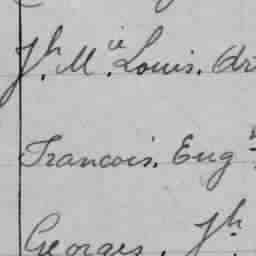 Jh. Mie. Louis. Ar
Francois. Eug
Georges. Jh.